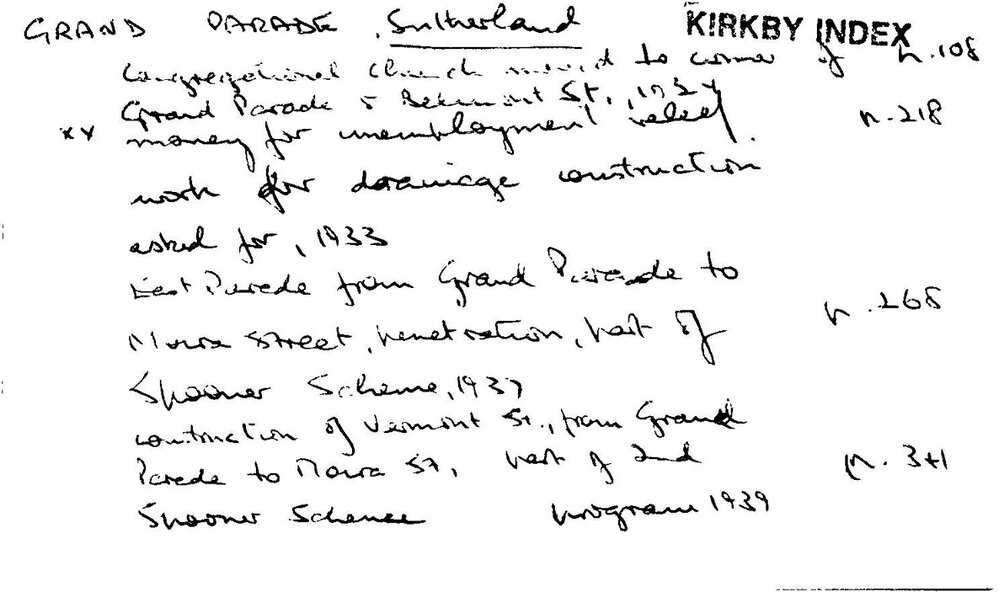 GRAND PARADE, Sutherland KIRKBY INDEX
Congregational Church moved to corner of p.108
Grand Parade & Belmont St.,
xx money for unemployment relief p.218
work for drainage construction
asked for, 1933
East Parade from Grand Parade to
Moira Street, penetration, part of p.268
Spooner Scheme, 1937
construction of Vermont St., from Grand
Parade to Moira St, part of 2nd p.341
Spooner Scheme program 1939